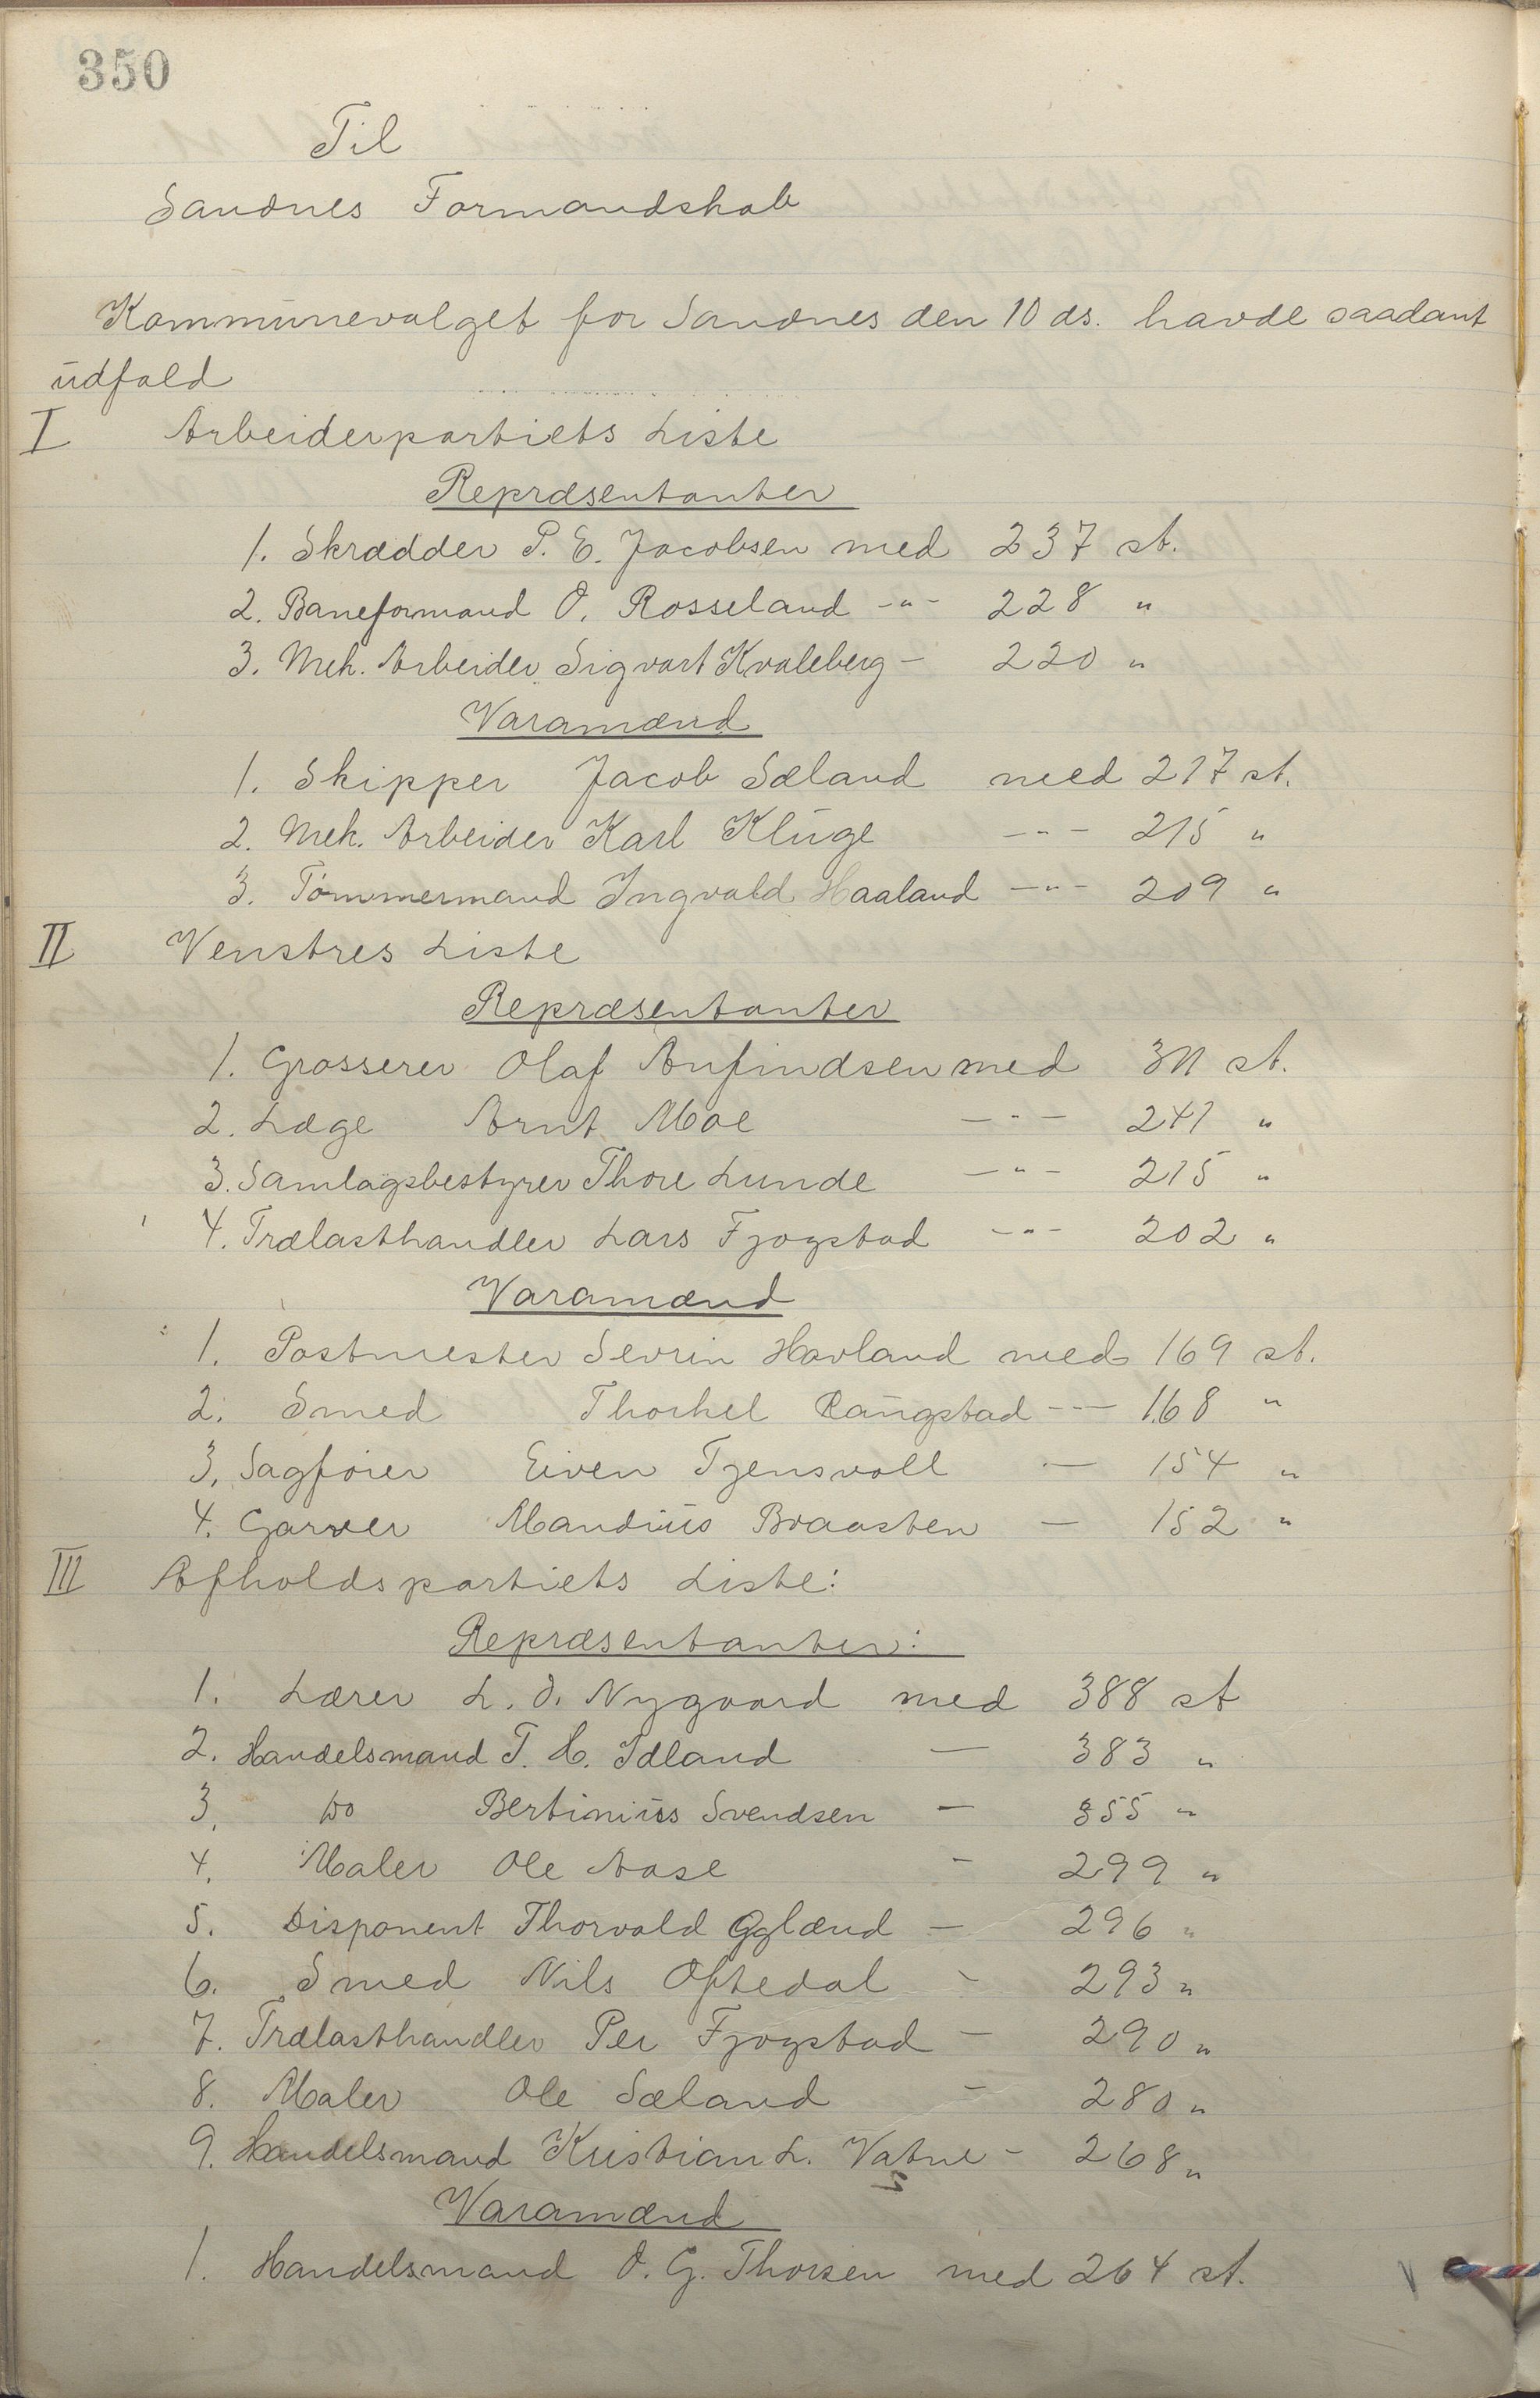 350
Til
Sandnes Formandskab
Kommunevalget for Sandnes den 10 ds. havde saadant
udfald
I Arbeiderpartiets Liste
Repræsentanter
1. Skrædder P. E. Jacobsen med 237 st.
2. Baneformand O. Rosseland -"- 228 "
3. Mek. Arbeider Sigvart Kvaleberg - 220 "
Varamænd
1. Skipper Jacob Sæland med 217 st.
2. Mek. Arbeider Karl Kluge -"- 215 "
3. Tömmermand Ingvald Haaland -"- 209 "
II Venstres Liste
Repræsentanter
1. Grosserer Olaf Anfindsen med 311 st.
2. Læge Arnt Moe -"- 241 "
3. Samlagsbestyrer Thore Lunde -"- 215 "
4. Trælasthandler Lars Fjogstad -"- 202 "
Varamænd
1. Postmester Sevrin Havland med 169 st.
2. Smed Thorkel Rangstad -"- 168 "
3. Sagförer Eiven Tjensvoll - 154 "
4. Garver Mandius Braasten - 152 "
III Afholdspartiets Liste:
Repræsentanter:
1. Lærer L. O. Nygaard med 388 st
2. Handelsmand T. H. Idland - 383 "
3. Do Bertinius Svendsen - 355 "
4. Maler Ole Aase - 299 "
5. Disponent Thorvald Oglænd - 296 "
6. Smed Nils Oftedal - 293 "
7. Trælasthandler Per Fjogstad - 290 "
8. Maler Ole Sæland - 280 "
9. Handelsmand Kristian L. Vatne - 268 "
Varamænd
1. Handelsmand O. G. Thorsen med 264 st.